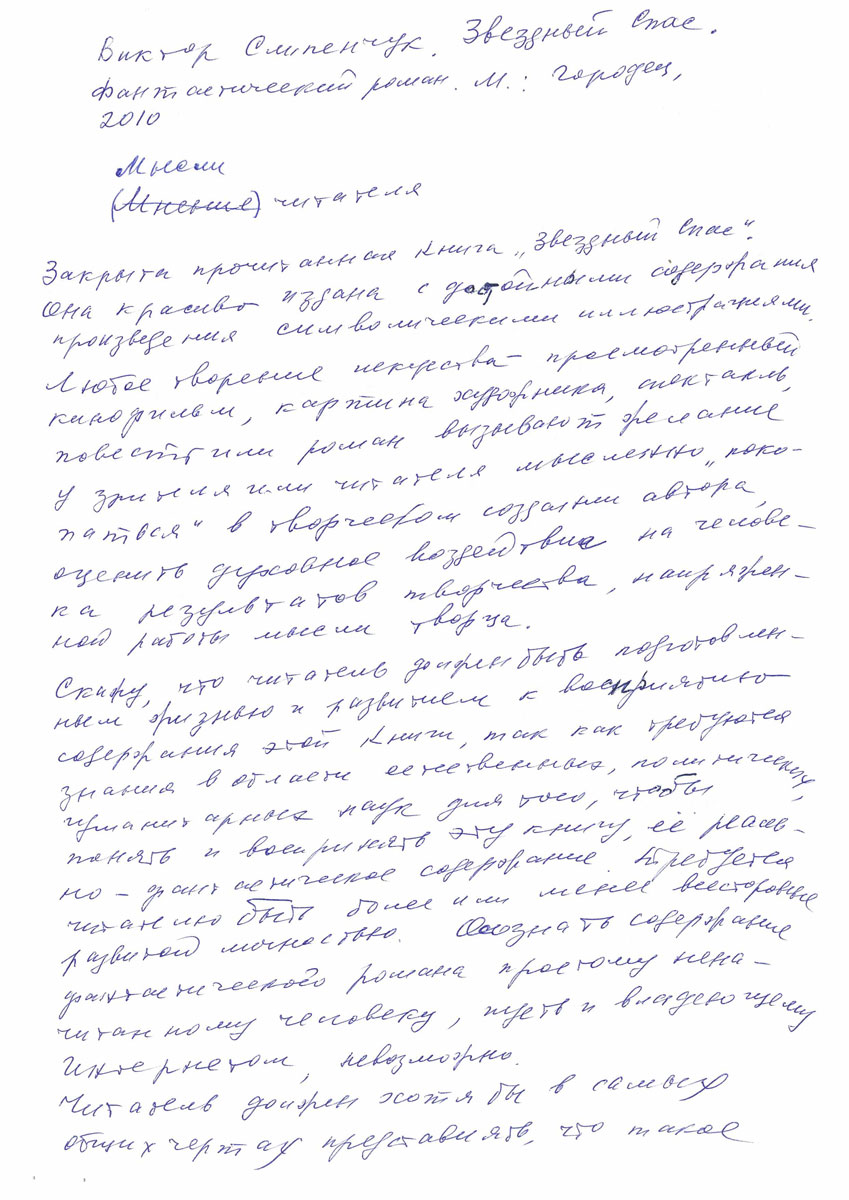 Виктор Слипенчук. Звездный Спас.
Фантастический роман. М.: Городец,
2010
Мысли
(Мнение) читателя
Закрыта прочитанная книга „Звездный Спас".
Она красиво издана с достойными содержания
произведения символическими иллюстрациями.
Любое творение искусства – просмотренный
кинофильм, картина художника, спектакль,
повесть или роман вызывают желание
у зрителя или читателя мысленно „поко-
паться" в творческом создании автора,
оценить духовное воздействие на челове-
ка результатов творчества, напряжен-
ной работы мысли творца.
Скажу, что читатель должен быть подготовлен-
ным жизнью и развитием к восприятию
содержания этой книги, так как требуются
знания в области естественных, политических,
гуманитарных наук для того, чтобы
понять и воспринять эту книгу, её реаль-
но-фантастическое содержание. Требуется
читателю быть более или менее всесторонне
развитой личностью. Осознать содержание
фантастического романа простому нена-
читанному человеку, пусть и владеющему
Интернетом, невозможно.
Читатель должен хотя бы в самых
общих чертах представлять, что такое